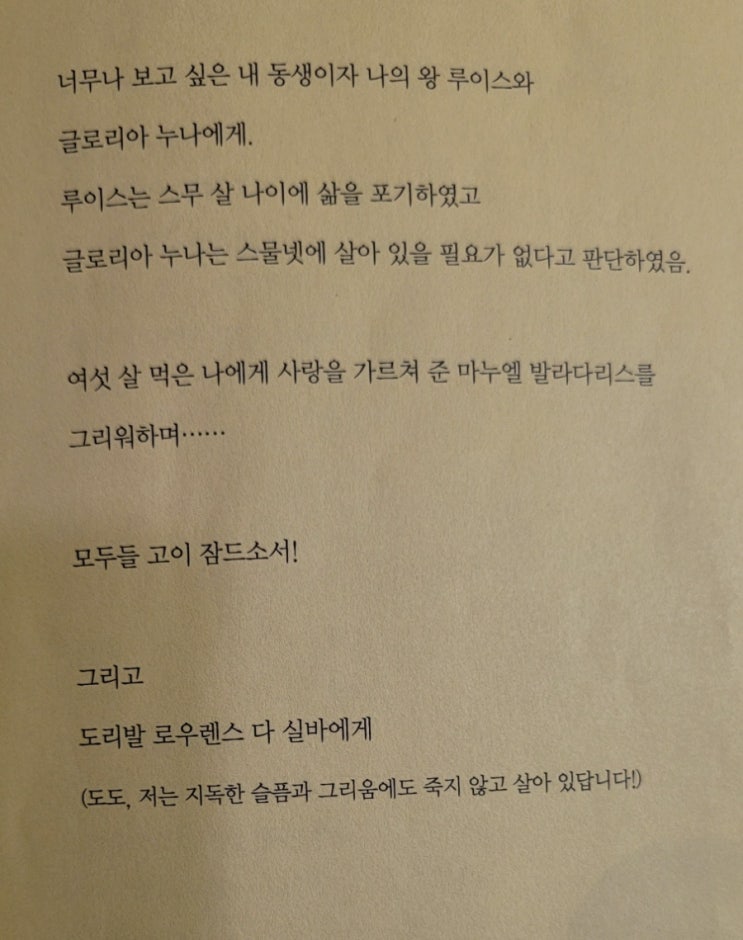 너무나 보고 싶은 내 동생이자 나의 왕 루이스와
글로리아 누나에게.
루이스는 스무 살 나이에 삶을 포기하였고
글로리아 누나는 스물넷에 살아 있을 필요가 없다고 판단하였음.
여섯 살 먹은 나에게 사랑을 가르쳐 준 마누엘 발라다리스를
그리워하며……
모두들 고이 잠드소서!
그리고
도리발 로우렌스 다 실바에게
(도도, 저는 지독한 슬픔과 그리움에도 죽지 않고 살아 있답니다!)